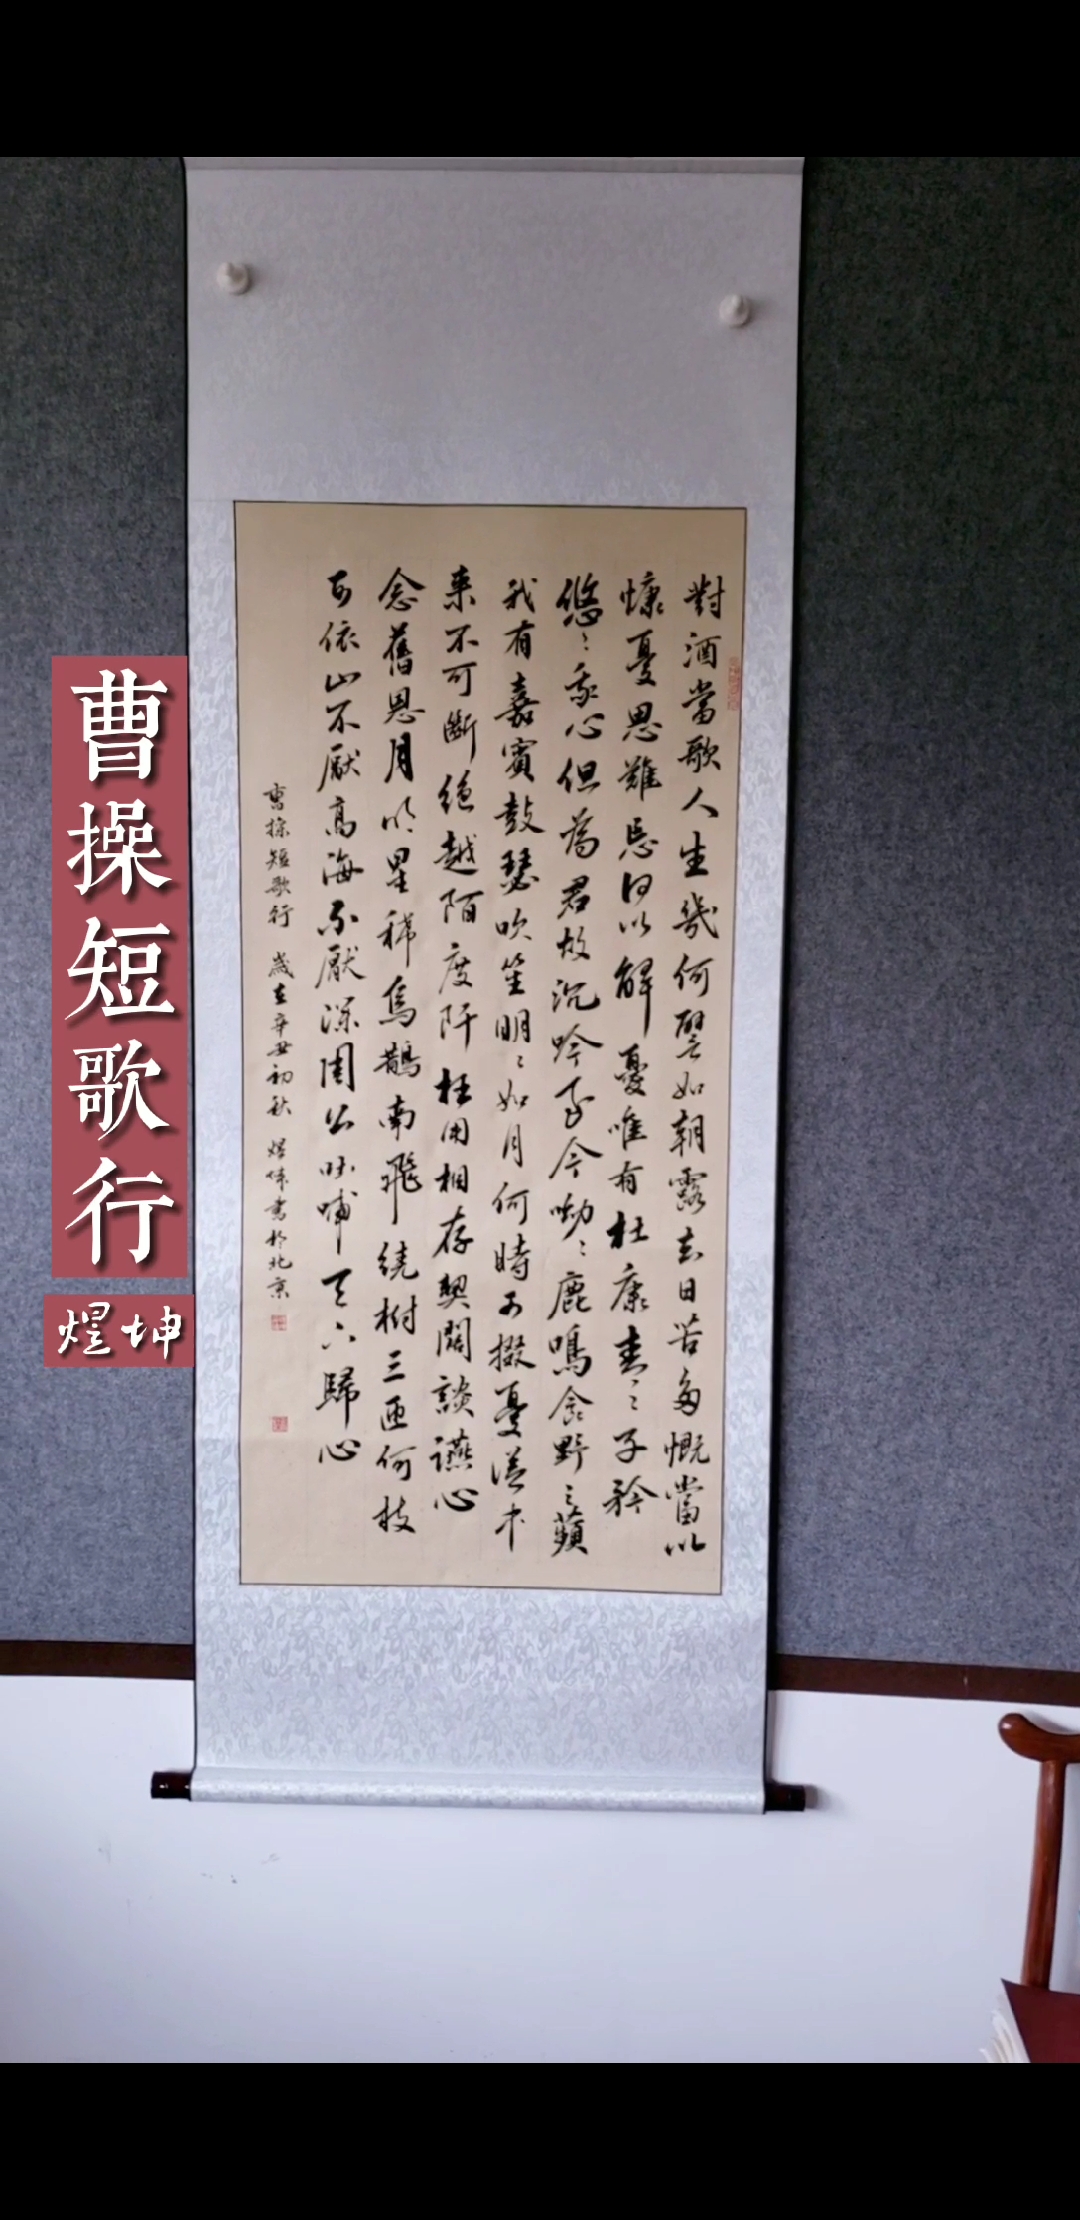 對酒當歌人生幾何譬如朝露去日苦多慨當以
慷憂思難忘何以解憂唯有杜康青〻子衿
悠〻我心但為君故沉吟至今呦〻鹿鳴食野之蘋
我有嘉賓鼓瑟吹笙明〻如月何時可掇憂從中
来不可斷絕越陌度阡枉用相存契闊談讌心
念舊恩月明星稀烏鵲南飛繞樹三匝何枝
可依山不厭高海不厭深周公吐哺天下歸心
曹操短歌行 歲在辛丑初秋 煜坤書於北京
曹操短歌行
煜坤